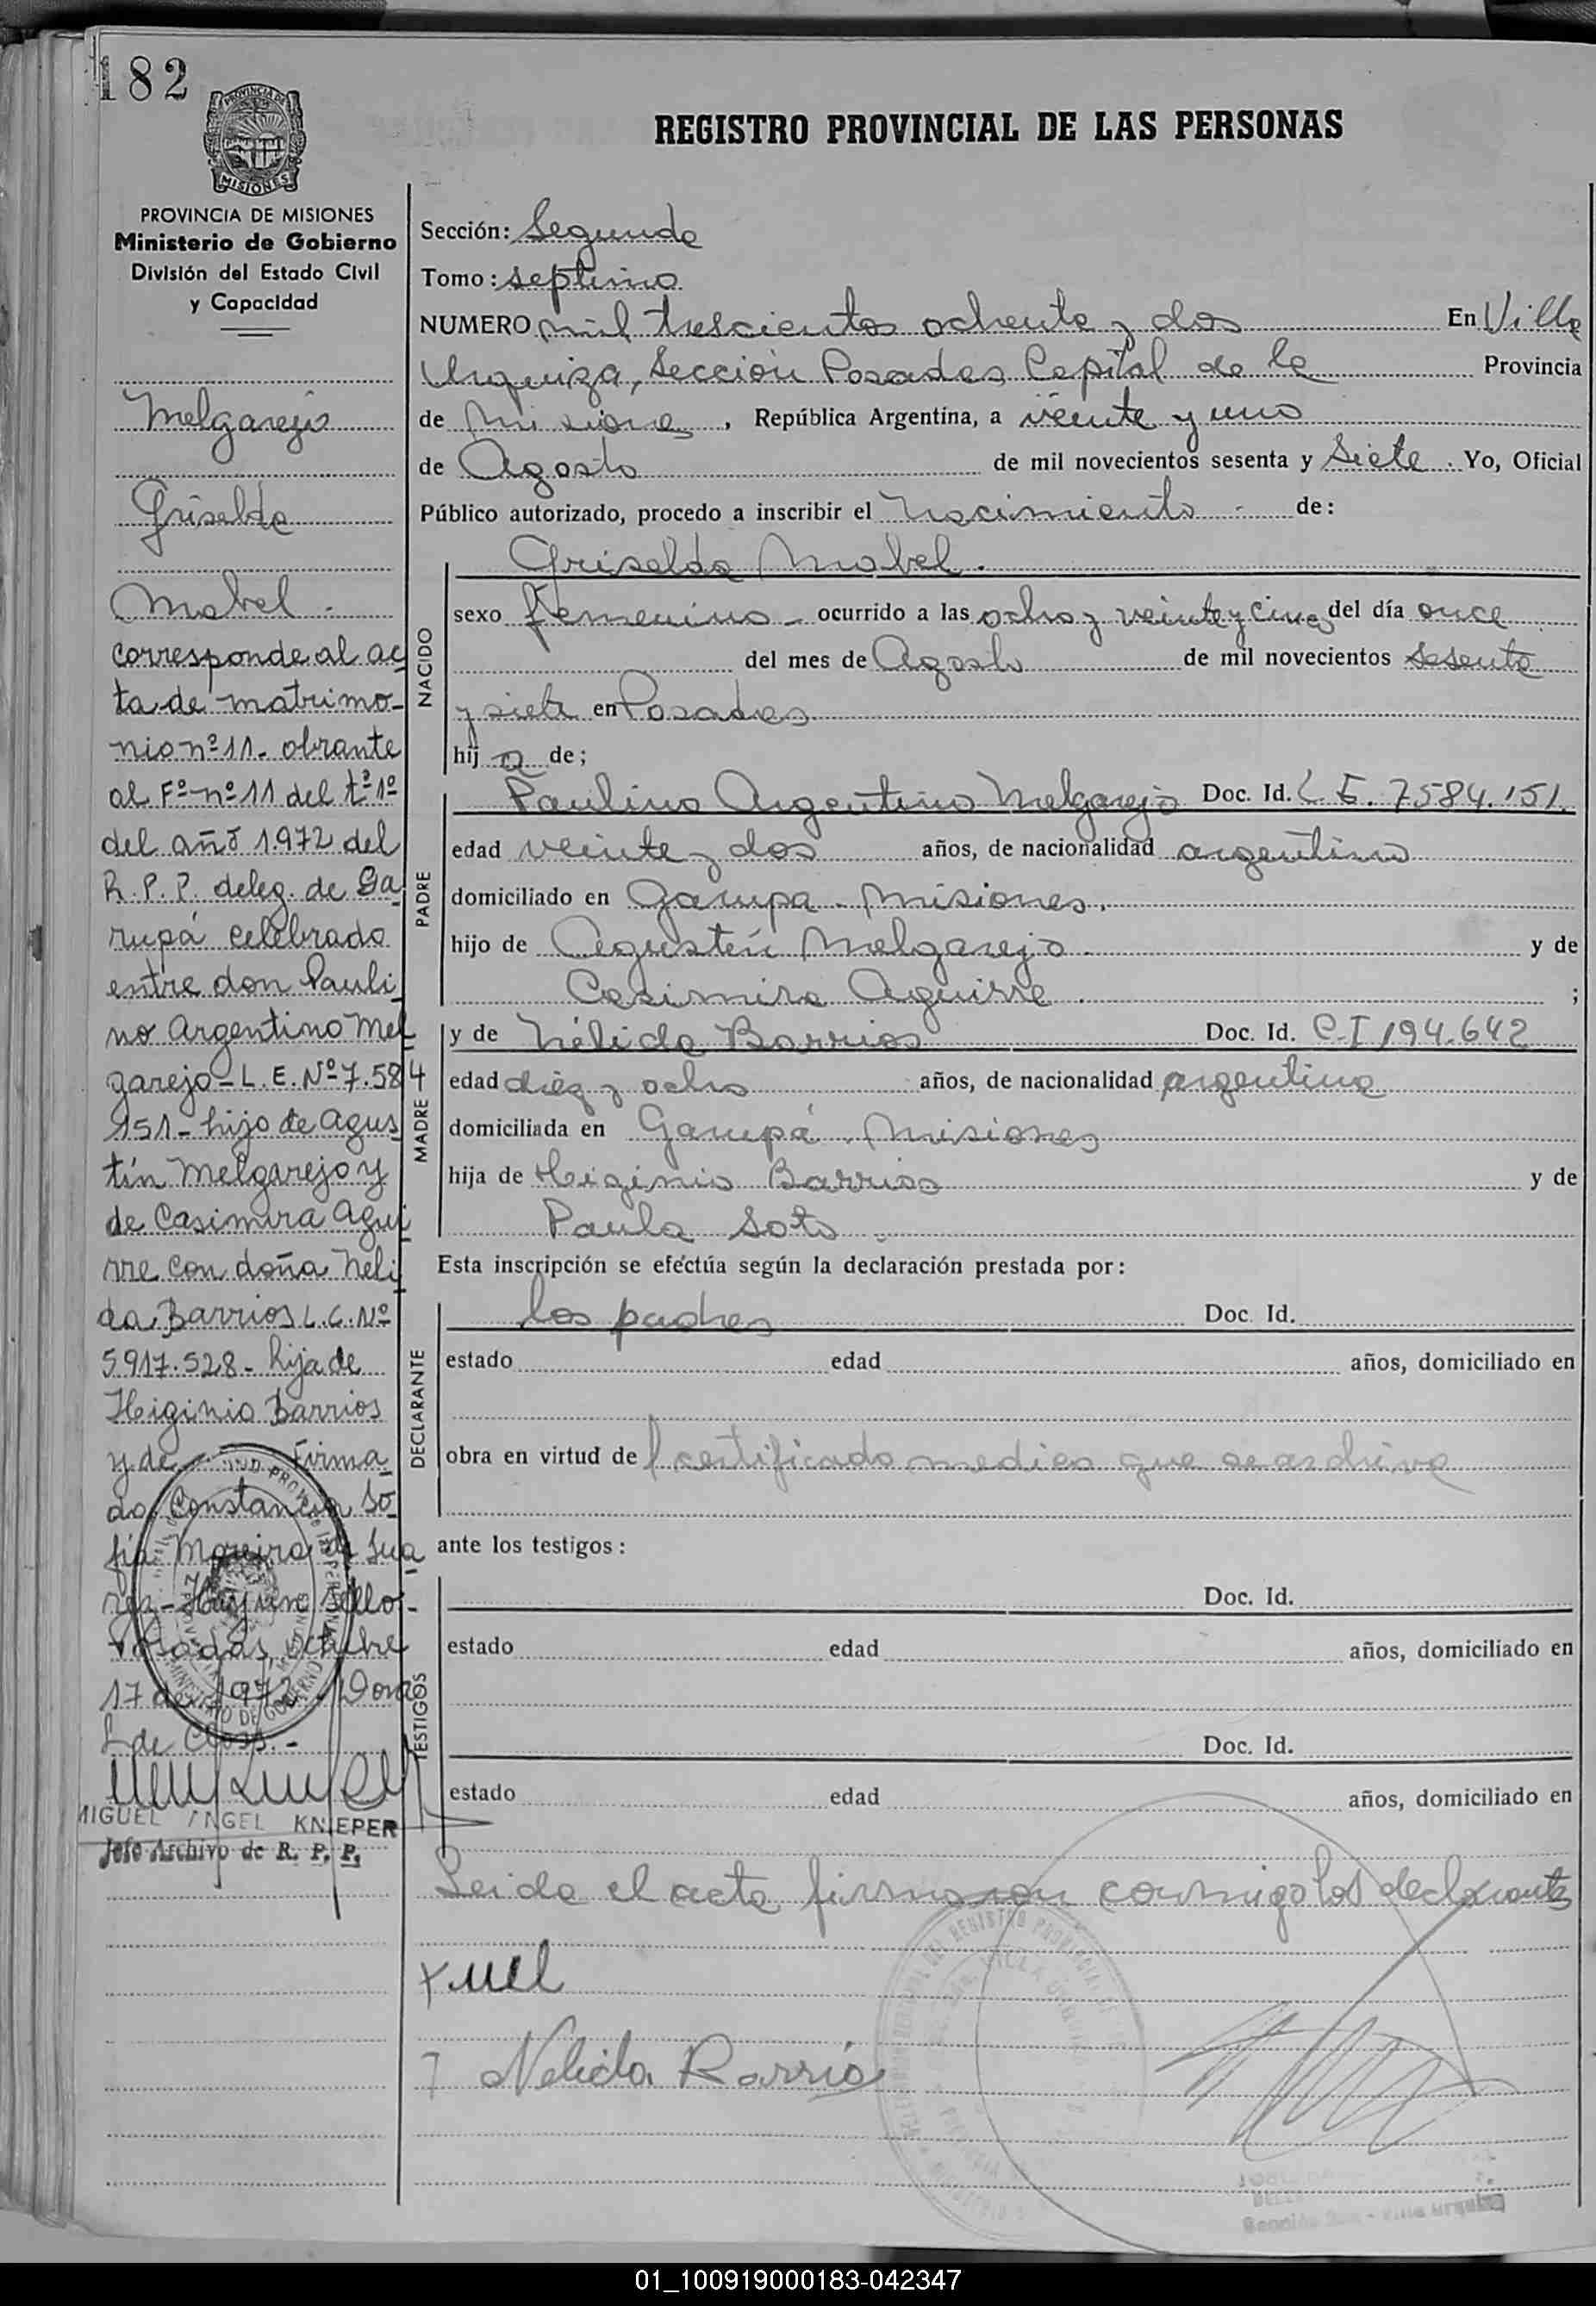 182
REGISTRO PROVINCIAL DE LAS PERSONAS
PROVINCIA DE
MISIONES
PROVINCIA DE MISIONES
Ministerio de Gobierno
División del Estado Civil
y Capacidad
Melgarejo
Griselda
Mabel.-
corresponde al ac
ta de matrimo-
nio nº 11- obrante
al Fº nº 11 del tº 1º
del año 1.972 del
R.P.P. deleg. de Ga
rupá celebrado
entre don Pauli
no Argentino Mel
garejo - L.E. Nº 7.584
151 - hijo de Agus
tín Melgarejo y
de Casimira Agui
rre con doña Neli
da Barrios L.C. Nº
5917.528 - hija de
Higinio Barrios
y de Firma
do Constancia So
fía Moreira de Sua
rez - Hay un sello.-
Posadas, octubre
17 de 1972.
L de
MIGUEL ANGEL KNIEPER
Jefe Archivo de R. P. P.
Sección: Segunda
Tomo: septimo
NUMERO mil trescientos ochenta y dos En Villa
Urquiza, Sección Posadas Capital de la Provincia
de Misiones, República Argentina, a veinte y uno
de Agosto de mil novecientos sesenta y siete. Yo, Oficial
Público autorizado, procedo a inscribir el nacimiento - de:
NACIDO
Griselda Mabel.
sexo femenino - ocurrido a las ocho y veinte y cinco del día once
del mes de Agosto de mil novecientos sesenta
y siete en Posadas
hij a de;
PADRE
Paulino Argentino Melgarejo Doc. Id. L.E. 7584.151.
edad veinte y dos años, de nacionalidad argentino
domiciliado en Garupa - Misiones.
hijo de Agustín Melgarejo y de
Casimira Aguirre. ;
MADRE
y de Nélida Barrios Doc. Id. C.I 194.642
edad diez y ocho años, de nacionalidad argentina
domiciliada en Garupá. Misiones
hija de Higinio Barrios y de
Paula Soto.
Esta inscripción se efectúa según la declaración prestada por:
DECLARANTE
los padres Doc. Id.
estado edad años, domiciliado en
obra en virtud de certificado medico que se archiva
ante los testigos:
TESTIGOS
Doc. Id.
estado edad años, domiciliado en
Doc. Id.
estado edad años, domiciliado en
Leida el acta firmaron conmigo los declarantes
Nelida Barrios
01_100919000183-042347